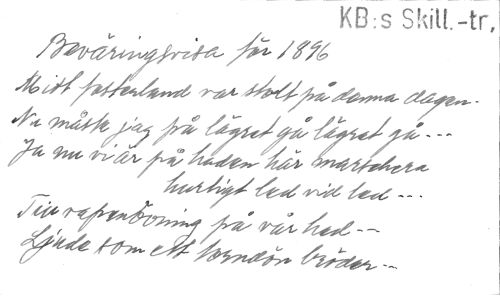 KB:s Skill.-tr,
Beväringsvisa för 1896
Mitt fosterland var stolt på denna dagen.
Nu måste jag på lägret gå lägret gå ---
Ja nu vi är på heden här marschera
hurtigt led vid led ---
Till vapenövning på vår hed --
Ljude som ett tordön bröder --